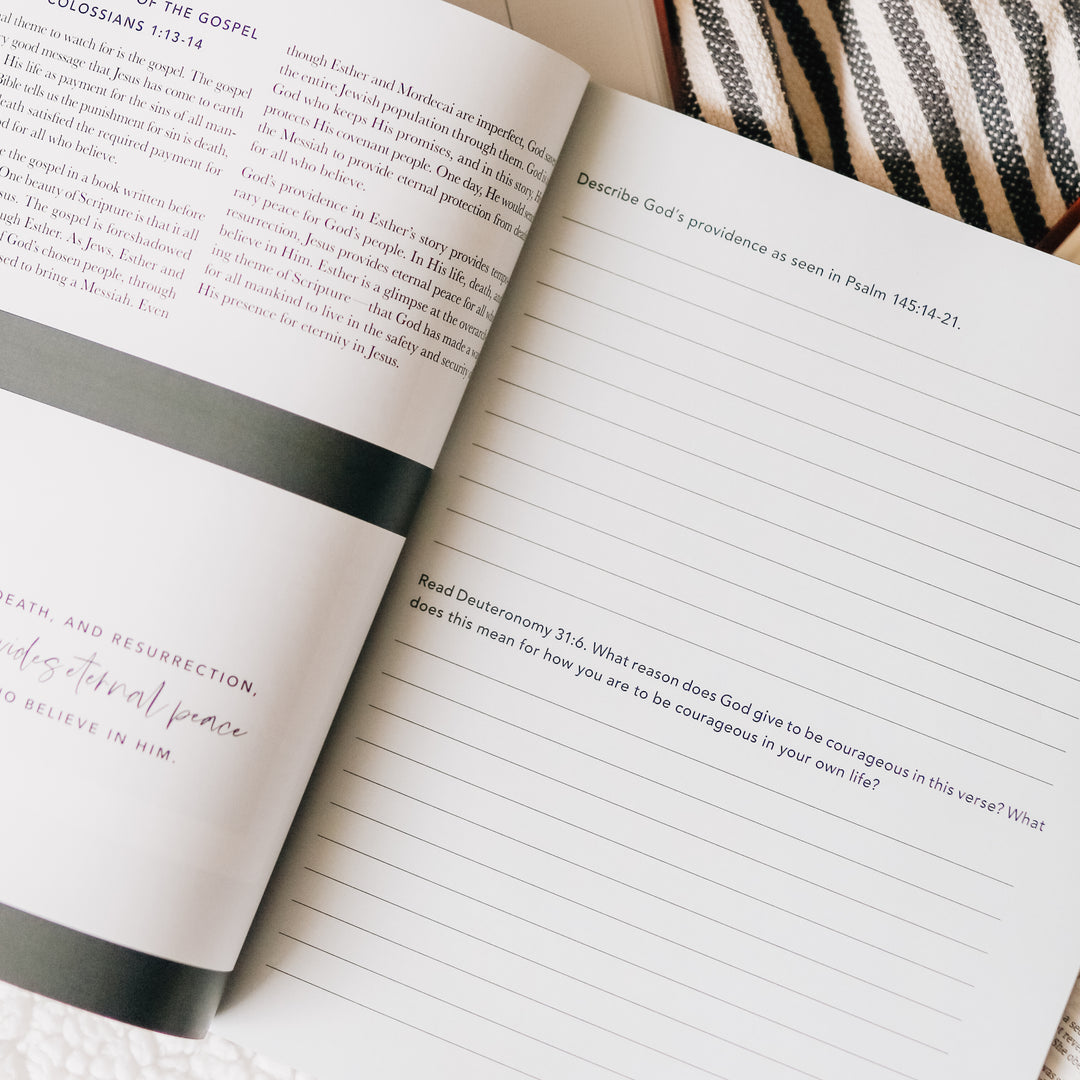 OF THE GOSPEL
COLOSSIANS 1:13-14
theme to watch for is the gospel. The gospel
good message that Jesus has come to earth
His life as payment for the sins of all man-
Bible tells us the punishment for sin is death,
satisfied the required payment for
for all who believe.
the gospel in a book written before
One beauty of Scripture is that it all
The gospel is foreshadowed
Esther. As Jews, Esther and
of God's chosen people, through
to bring a Messiah. Even
though Esther and Mordecai are imperfect, God
the entire Jewish population through them. God is
God who keeps His promises, and in this story, He
protects His covenant people. One day, He would send
the Messiah to provide eternal protection from death
for all who believe.
God's providence in Esther's story provides
rary peace for God's people. In His life, death, and
resurrection, Jesus provides eternal peace for all who
believe in Him. Esther is a glimpse at the
ing theme of Scripture—that God has made a way
for all mankind to live in the safety and security of
His presence for eternity in Jesus.
DEATH, AND RESURRECTION,
eternal peace
BELIEVE IN HIM.
Describe God's providence as seen in Psalm 145:14-21.
Read Deuteronomy 31:6. What reason does God give to be courageous in this verse? What
does this mean for how you are to be courageous in your own life?